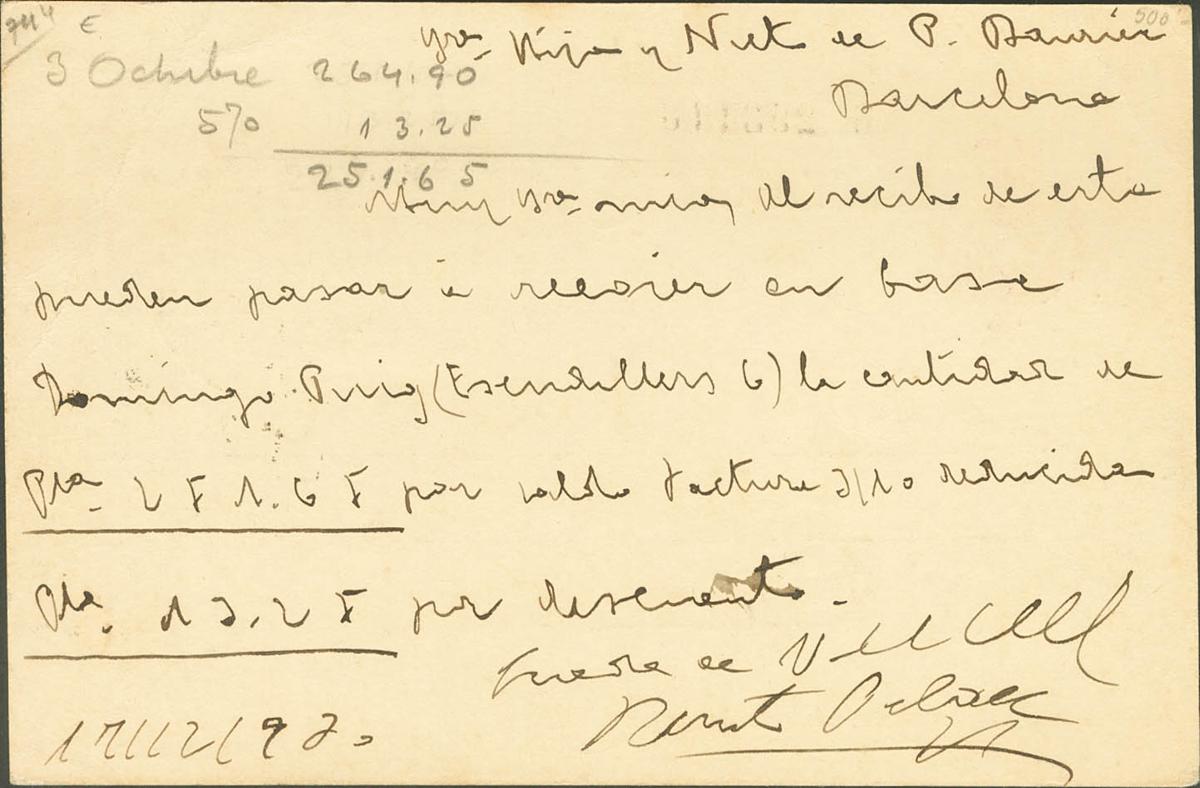 744 €
500
Sres Hijo y Nieto de P.
3 Octubre 264.90
Barcelona
5% 13.25
251.65
Muy Sres mios, Al recibo de esta
pueden pasar á recojer en casa
Domingo Puig (Escudillers 6) la cantidad de
Ptas 251.65 por saldo factura 3/10 reducida
Ptas 13.25 por descuento.
Queda de V
17/12/9